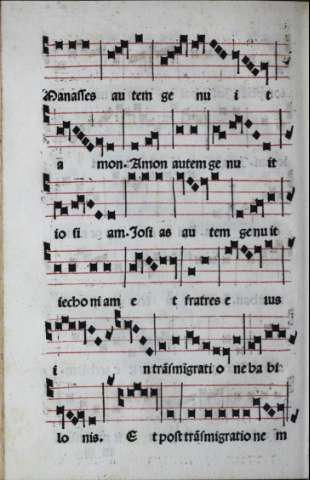 Manasses au tem ge nu i t
a mon. Amon autem ge nu it
io si am. Josi as au tem genuit
iecho ni am e t fratres e ius
i n trāsmīgrati o ne ba bi
lo nis. E t post trāsmigratione m